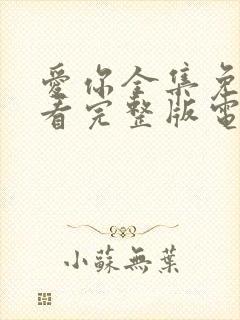 愛你全集免
看完整版電
小蘇無葉